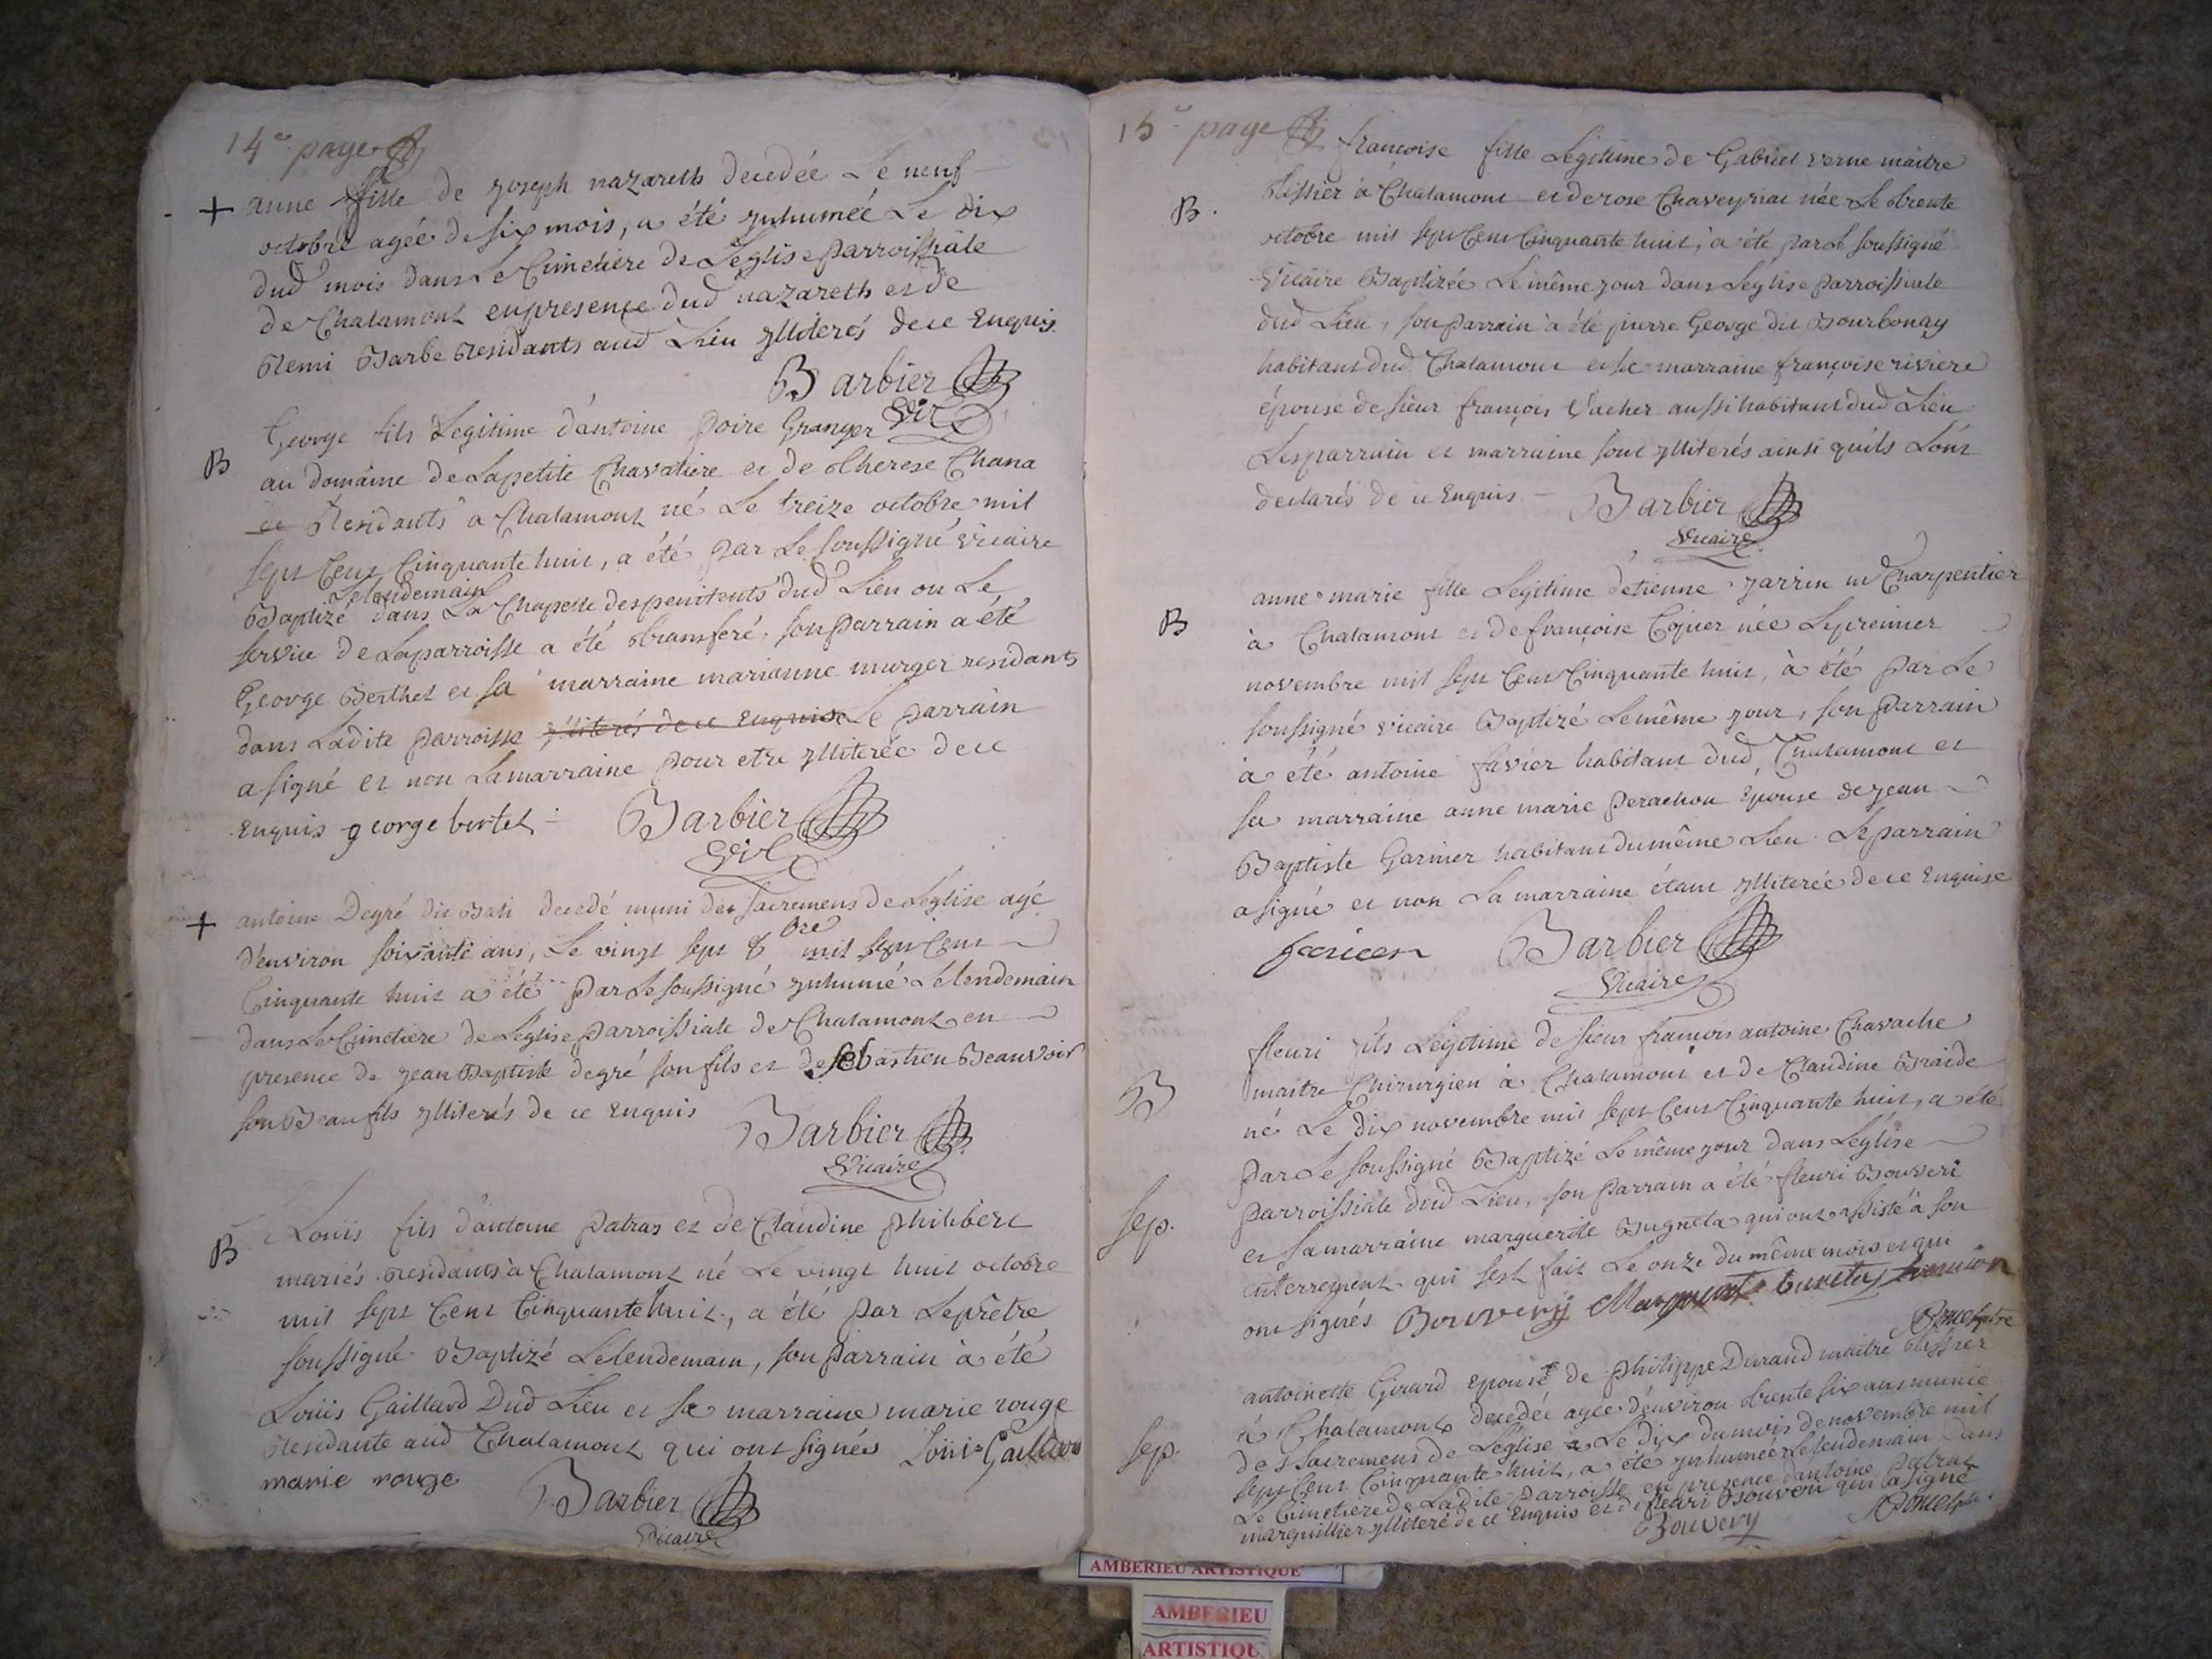 14e page
+ anne fille de joseph nazareth decedée Le neuf
octobre agée de six mois, a été ynhumée Le dix
dud mois dans Le Cimetiere de L'eglise parroissiale
de Chatamont en presence dud nazareth et de
Remi Barbe Residants aud Lieu ylliterés de ce Enquis
Barbier
Vic
George fils Legitime d'antoine poire Granger
B
au domaine de La petite Chavatiere et de therese Chana
et Residants à Chatamont né Le treize octobre mil
sept Cent Cinquante huit, a été par Le soussigné vicaire
Le lendemain
Baptizé dans La Chapelle des penitents dud Lieu ou Le
service de La parroisse a été transferé, son parrain a été
George Berthet et sa marraine marianne murger residants
dans Ladite parroisse ylliterés de ce Enquise Le parrain
a signé et non La marraine pour etre ylliterée de ce
Enquis george bertet
Barbier
Vic
+ antoine Degré dit Bati decedé muni des sacremens de L'eglise agé
d'environ soixante ans, Le vingt sept 8bre mil sept Cent
Cinquante huit a été par Le soussigné ynhumé Le lendemain
dans Le Cimetiere de L'eglise parroissiale de Chatamont en
presence de jean Baptiste degré son fils et de sebastien Beauvoir
son Beau fils ylliterés de ce Enquis
Barbier
Vicaire
B Louis fils d'antoine patras et de Claudine philibert
mariés Residants à Chatamont né Le vingt huit octobre
mil sept Cent Cinquante huit, a été par Le prêtre
soussigné Baptizé Le lendemain, son parrain à été
Louis Gaillard Dud Lieu et sa marraine marie rouge
Residante aud Chatamont qui ont signés Louis Gaillard
marie rouge
Barbier
Vicaire
15e page
francoise fille Legitime de Gabriel verne maitre
B.
tissier à Chatamont et de rose Chaveyriat née Le trente
octobre mil sept Cent Cinquante huit, a été par Le soussigné
Vicaire Baptizée Le même jour dans L'eglise parroissiale
dud Lieu, son parrain a été pierre George dit Bourbonay
habitant dud Chatamont et sa marraine françoise riviere
épouse de sieur françois Vacher aussi habitant dud Lieu
Les parrain et marraine sont ylliterés ainsi qu'ils L'ont
declarés de ce Enquis.
Barbier
Vicaire
anne marie fille Legitime d'etienne jarrin Charpentier
B
à Chatamont et de françoise Cojier née Le premier
novembre mil sept Cent Cinquante huit, à été par Le
soussigné vicaire Baptizé Le même jour, son parrain
à été antoine favier habitant dud Chatamont et
sa marraine anne marie perachon Epouse de jean
Baptiste Garnier habitant du même Lieu. Le parrain
a signé et non La marraine étant ylliterée de ce Enquise
Barbier
Vicaire
fleuri fils Legitime de sieur francois antoine Chavache
B
maitre Chirurgien à Chatamont et de Claudine Braide
né Le dix novembre mil sept Cent Cinquante huit, a été
par Le soussigné Baptizé Le même jour dans L'eglise
sep.
parroissiale dud Lieu, son parrain a été fleuri Bouveri
et sa marraine marguerite Bugneta qui ont assisté à son
enterrement qui s'est fait Le onze du même mois et qui
ont signés Bouvery
antoinette Girard epouse de philippe Durand maitre tissier
à Chatamont decedée agée d'environ trente six ans munie
sep.
des sacremens de L'eglise Le dix du mois de novembre mil
sept Cent Cinquante huit, a été ynhumée Le lendemain dans
Le Cimetiere de Ladite parroisse en presence d'antoine patras
marguillier ylliteré de ce Enquis et de fleuri Bouveri qui a signé
Bouvery
AMBERIEU ARTISTIQUE
AMBERIEU
ARTISTIQU